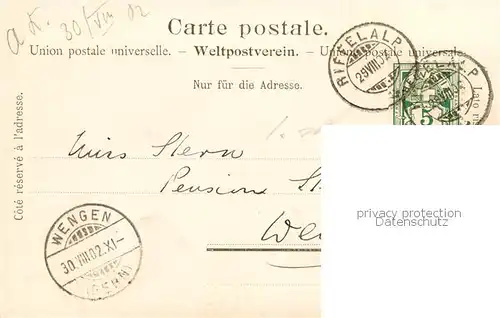 a K. 30/VIII 02
Carte postale.
Union postale universelle. – Weltpostverein. – Union postale universale.
Nur für die Adresse.
Côté réservé à l'adresse.
RIFFELALP
29.VIII.02
5
Miss Stern
Pension
We
privacy protection
address
WENGEN
30.VIII.02.XI–
(BERN)